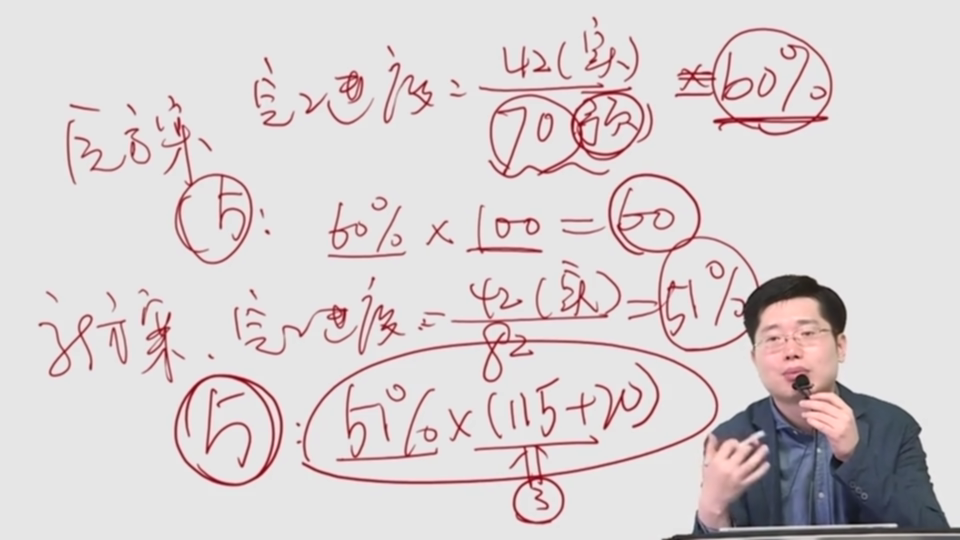 完工进度=42(实)/70(预) =60%
原方案
5: 60%×100=60
新方案、完工进度=42(实)/82=51%
5: 51%×(115+20)
3